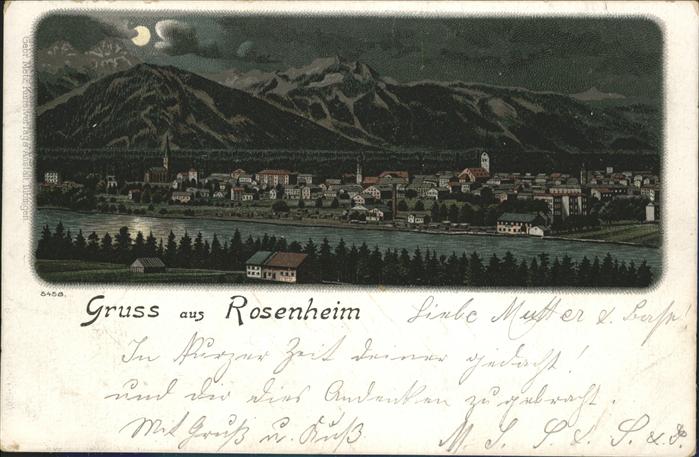 Gebr. Metz Kunstverlags-Anstalt Tübingen
5458.
Gruss aus Rosenheim
Liebe Mutter &
In kurzer Zeit deiner gedacht!
und dir dies Andenken zugebracht.
Mit Gruß u. Kuß.
M. S. S. & S. & S.